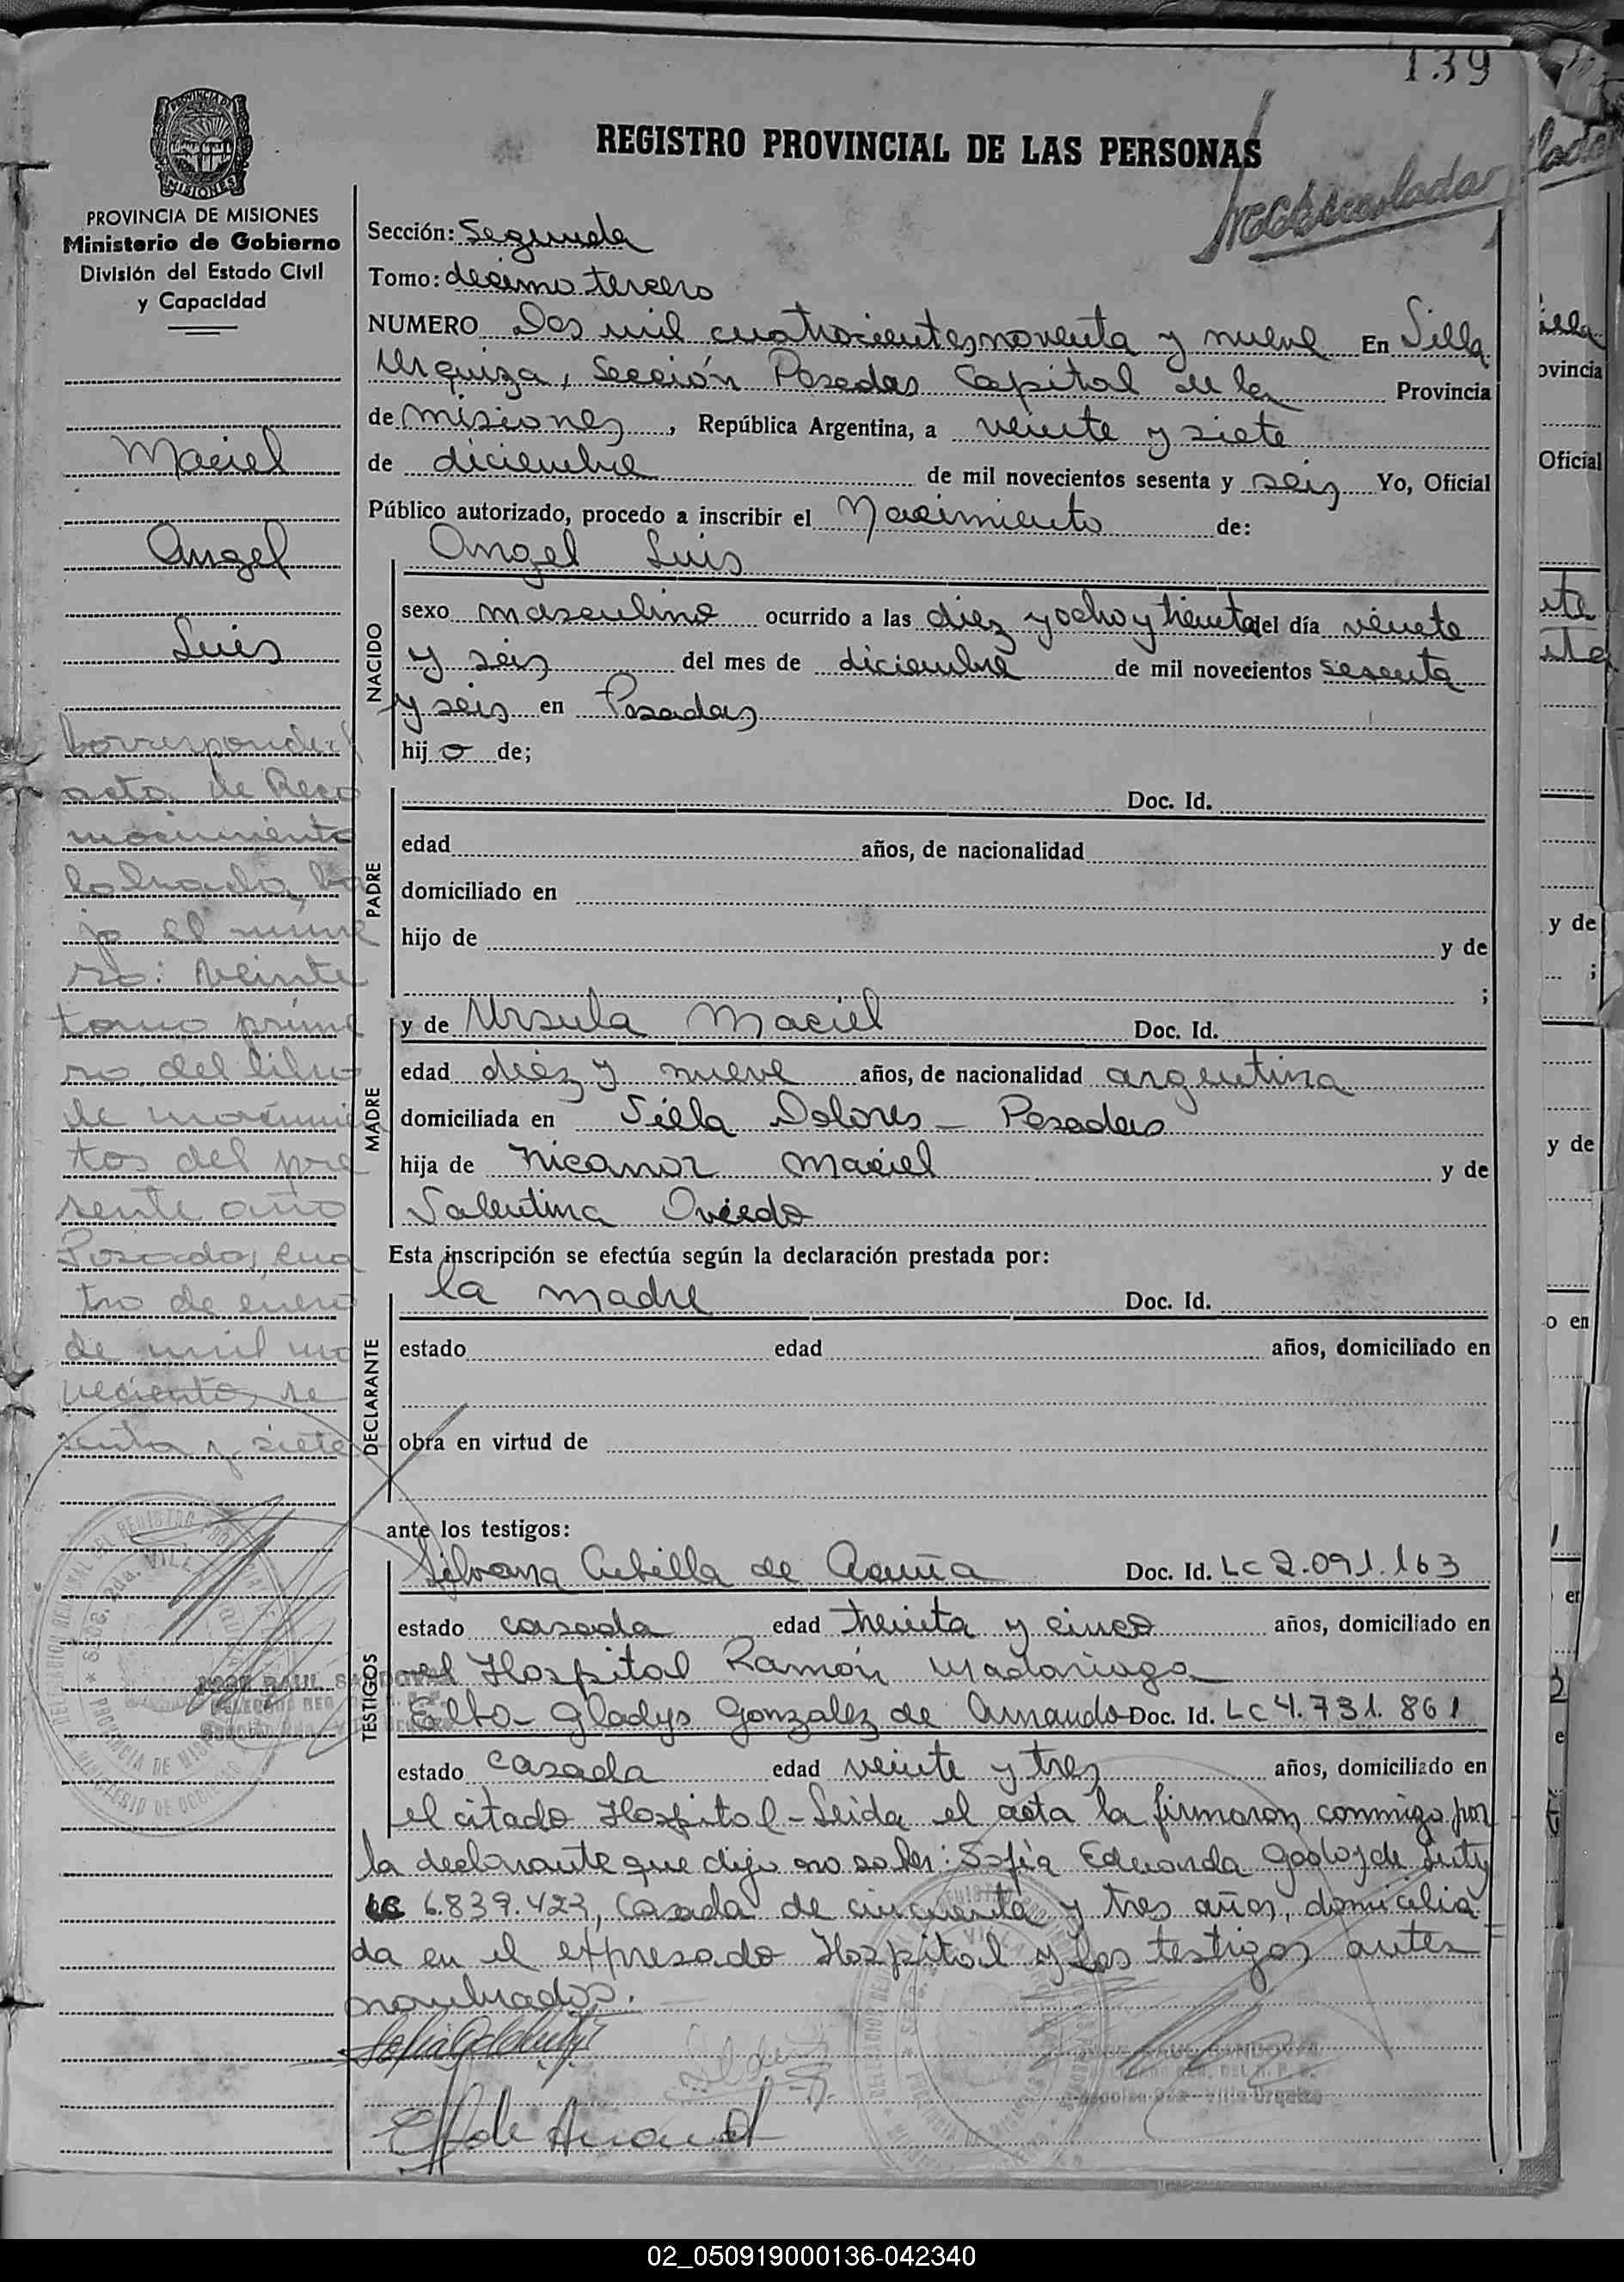 139
PROVINCIA DE
MISIONES
PROVINCIA DE MISIONES
Ministerio de Gobierno
División del Estado Civil
y Capacidad
Maciel
Angel
Luis
Corresponde el
acta de Reco
nocimiento
labrada ba
jo el núme
ro: Veinte
tomo prime
ro del libro
de nacimien
tos del pre
sente año
Posadas, cua
tro de enero
de mil no
vecientos se
senta y siete
REGISTRO PROVINCIAL DE LAS PERSONAS
Sección: Segunda
Tomo: decimo tercero
NUMERO Dos mil cuatrocientos noventa y nueve En Villa
Urquiza, Sección Posadas Capital de la Provincia
de misiones, República Argentina, a veinte y siete
de diciembre de mil novecientos sesenta y seis Yo, Oficial
Público autorizado, procedo a inscribir el Nacimiento de:
Angel Luis
NACIDO
sexo masculino ocurrido a las diez y ocho y treinta del día veinte
y seis del mes de diciembre de mil novecientos sesenta
y seis en Posadas
hijo de;
PADRE
Doc. Id.
edad años, de nacionalidad
domiciliado en
hijo de y de
;
MADRE
y de Ursula Maciel Doc. Id.
edad diez y nueve años, de nacionalidad argentina
domiciliada en Villa Dolores - Posadas
hija de Nicanor Maciel y de
Valentina Oviedo
Esta inscripción se efectúa según la declaración prestada por:
DECLARANTE
la madre Doc. Id.
estado edad años, domiciliado en
obra en virtud de
ante los testigos:
TESTIGOS
Silvana Cubilla de Acuña Doc. Id. LC 2.091.163
estado casada edad treinta y cinco años, domiciliado en
el Hospital Ramón Madariaga
Elba Gladys Gonzalez de Doc. Id. LC 4.731.861
estado casada edad veinte y tres años, domiciliado en
el citado Hospital - Leida el acta la firmaron conmigo por
la declarante que dijo no saber: Sofia Eduarda Godoy de
LC 6.839.423, casada de cincuenta y tres años, domicilia
da en el expresado Hospital y los testigos antes
nombrados.
02_050919000136-042340